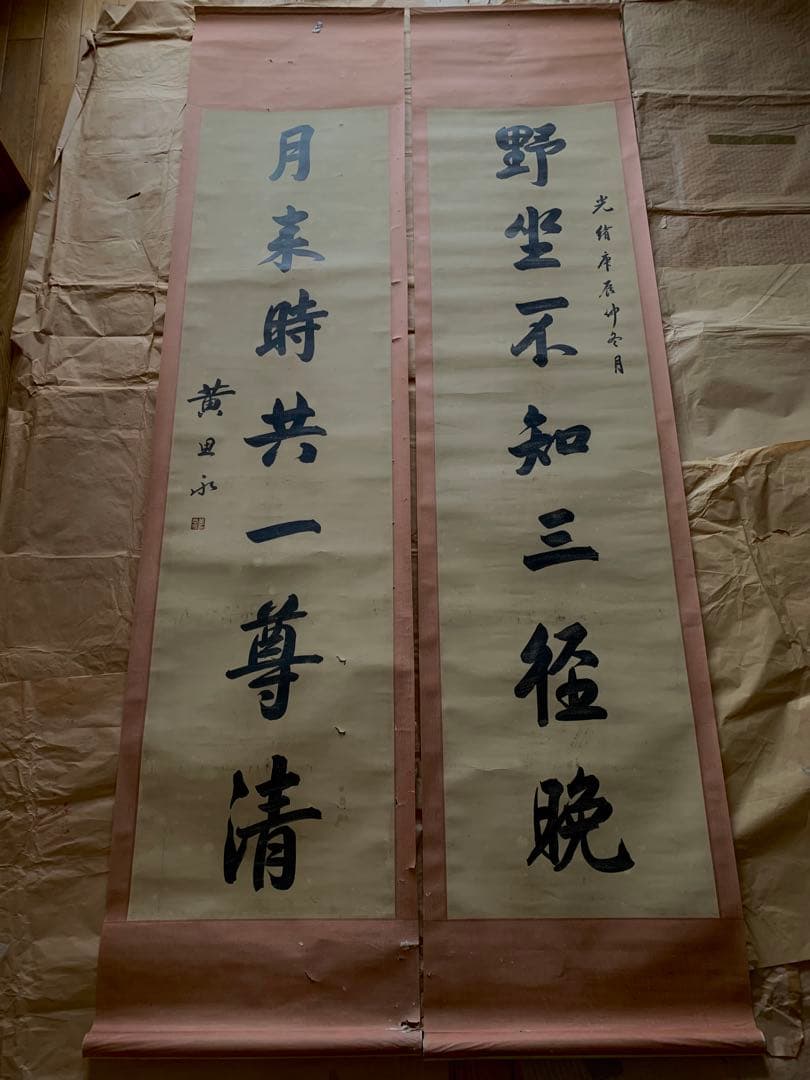 光緒庚辰仲冬月
野坐不知三徑晚
月来時共一尊清
黄思永